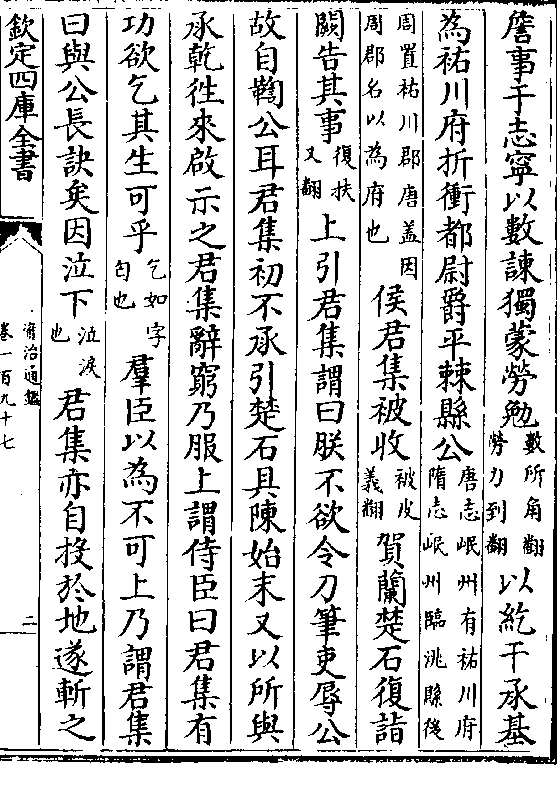 詹事于志寧以數諫獨蒙勞勉數所角翻勞力到翻以紇干承基
為祐川府折衝都尉爵平棘縣公唐志岷州有祐川府隋志岷州臨洮縣後
周置祐川郡唐盖因周郡名以為府也侯君集被收被皮義翻賀蘭楚石復詣
闕告其事復扶又翻上引君集謂曰朕不欲令刀筆吏辱公
故自鞫公耳君集初不承引楚石具陳始末又以所與
承乾徃來啟示之君集辭窮乃服上謂侍臣曰君集有
功欲乞其生可乎乞如字匄也羣臣以為不可上乃謂君集
曰與公長訣矣因泣下泣淚也君集亦自投於地遂斬之
欽定四庫全書
資治通鑑
卷一百九十七
二